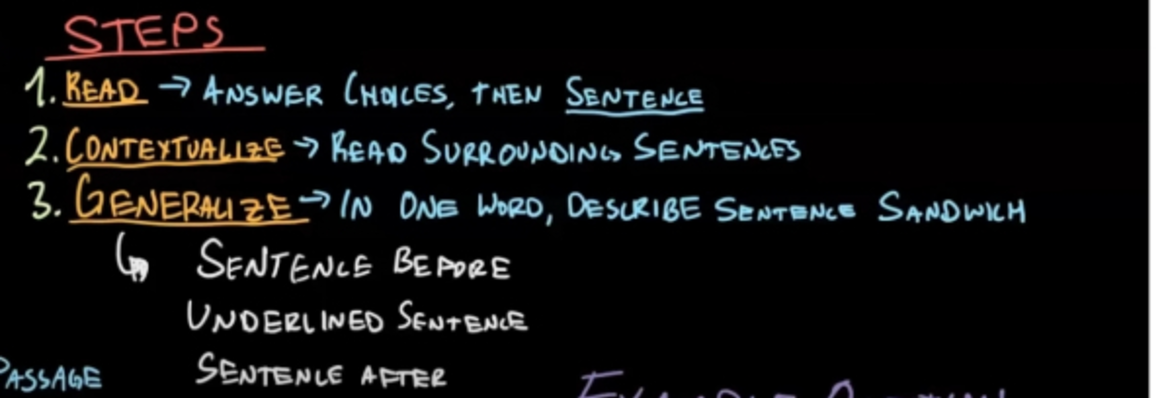 STEPS
1. READ → ANSWER CHOICES, THEN SENTENCE
2. CONTEXTUALIZE → READ SURROUNDING SENTENCES
3. GENERALIZE → IN ONE WORD, DESCRIBE SENTENCE SANDWICH
↳ SENTENCE BEFORE
UNDERLINED SENTENCE
PASSAGE SENTENCE AFTER